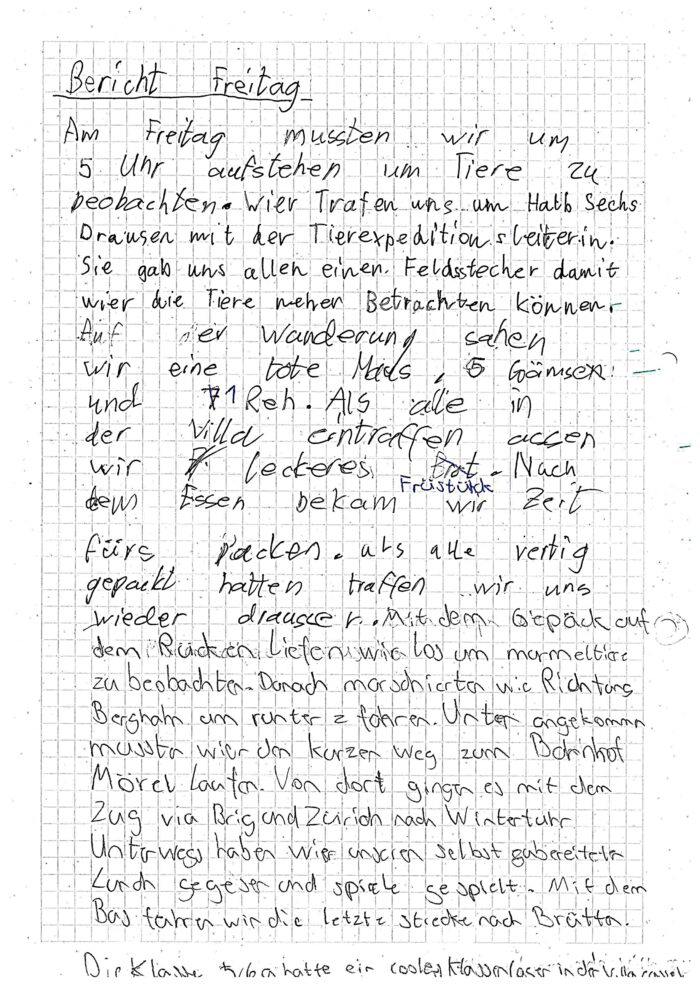 Bericht Freitag
Am Freitag mussten wir um
5 Uhr aufstehen um Tiere zu
beobachten. Wier Trafen uns um Halb Sechs
Drausen mit der Tierexpeditionsleiterin.
Sie gab uns allen einen Feldsstecher damit
wier die Tiere neher Betrachten können.
Auf der Wanderung sahen
wir eine tote Maus, 5 Gämsen
und 1 Reh. Als alle in
der Villa eintraffen assen
wir leckeres Früstükk. Nach
dem Essen bekam wir Zeit
fürs packen. als alle vertig
gepackt hatten traffen wir uns
wieder drausen. Mit dem Gepäck auf
dem Rücken Liefen wir los um murmeltire
zu beobachten. Danach marschierten wir Richtung
Bergbahn um runter z fahren. Unten angekommn
mussten wier den kurzen weg zum Bahnhof
Mörel Laufen. Von dort gingen es mit dem
Zug via Brig und Zürich nach Wintertuhr
Unterwegs haben wier unseren selbst zubereiteten
Lunch gegesen und spiele gespielt. Mit dem
Bus fahren wir die letzte strecke nach Brütten.
Die Klasse hatte ein cooles Klassenlager in der Villa